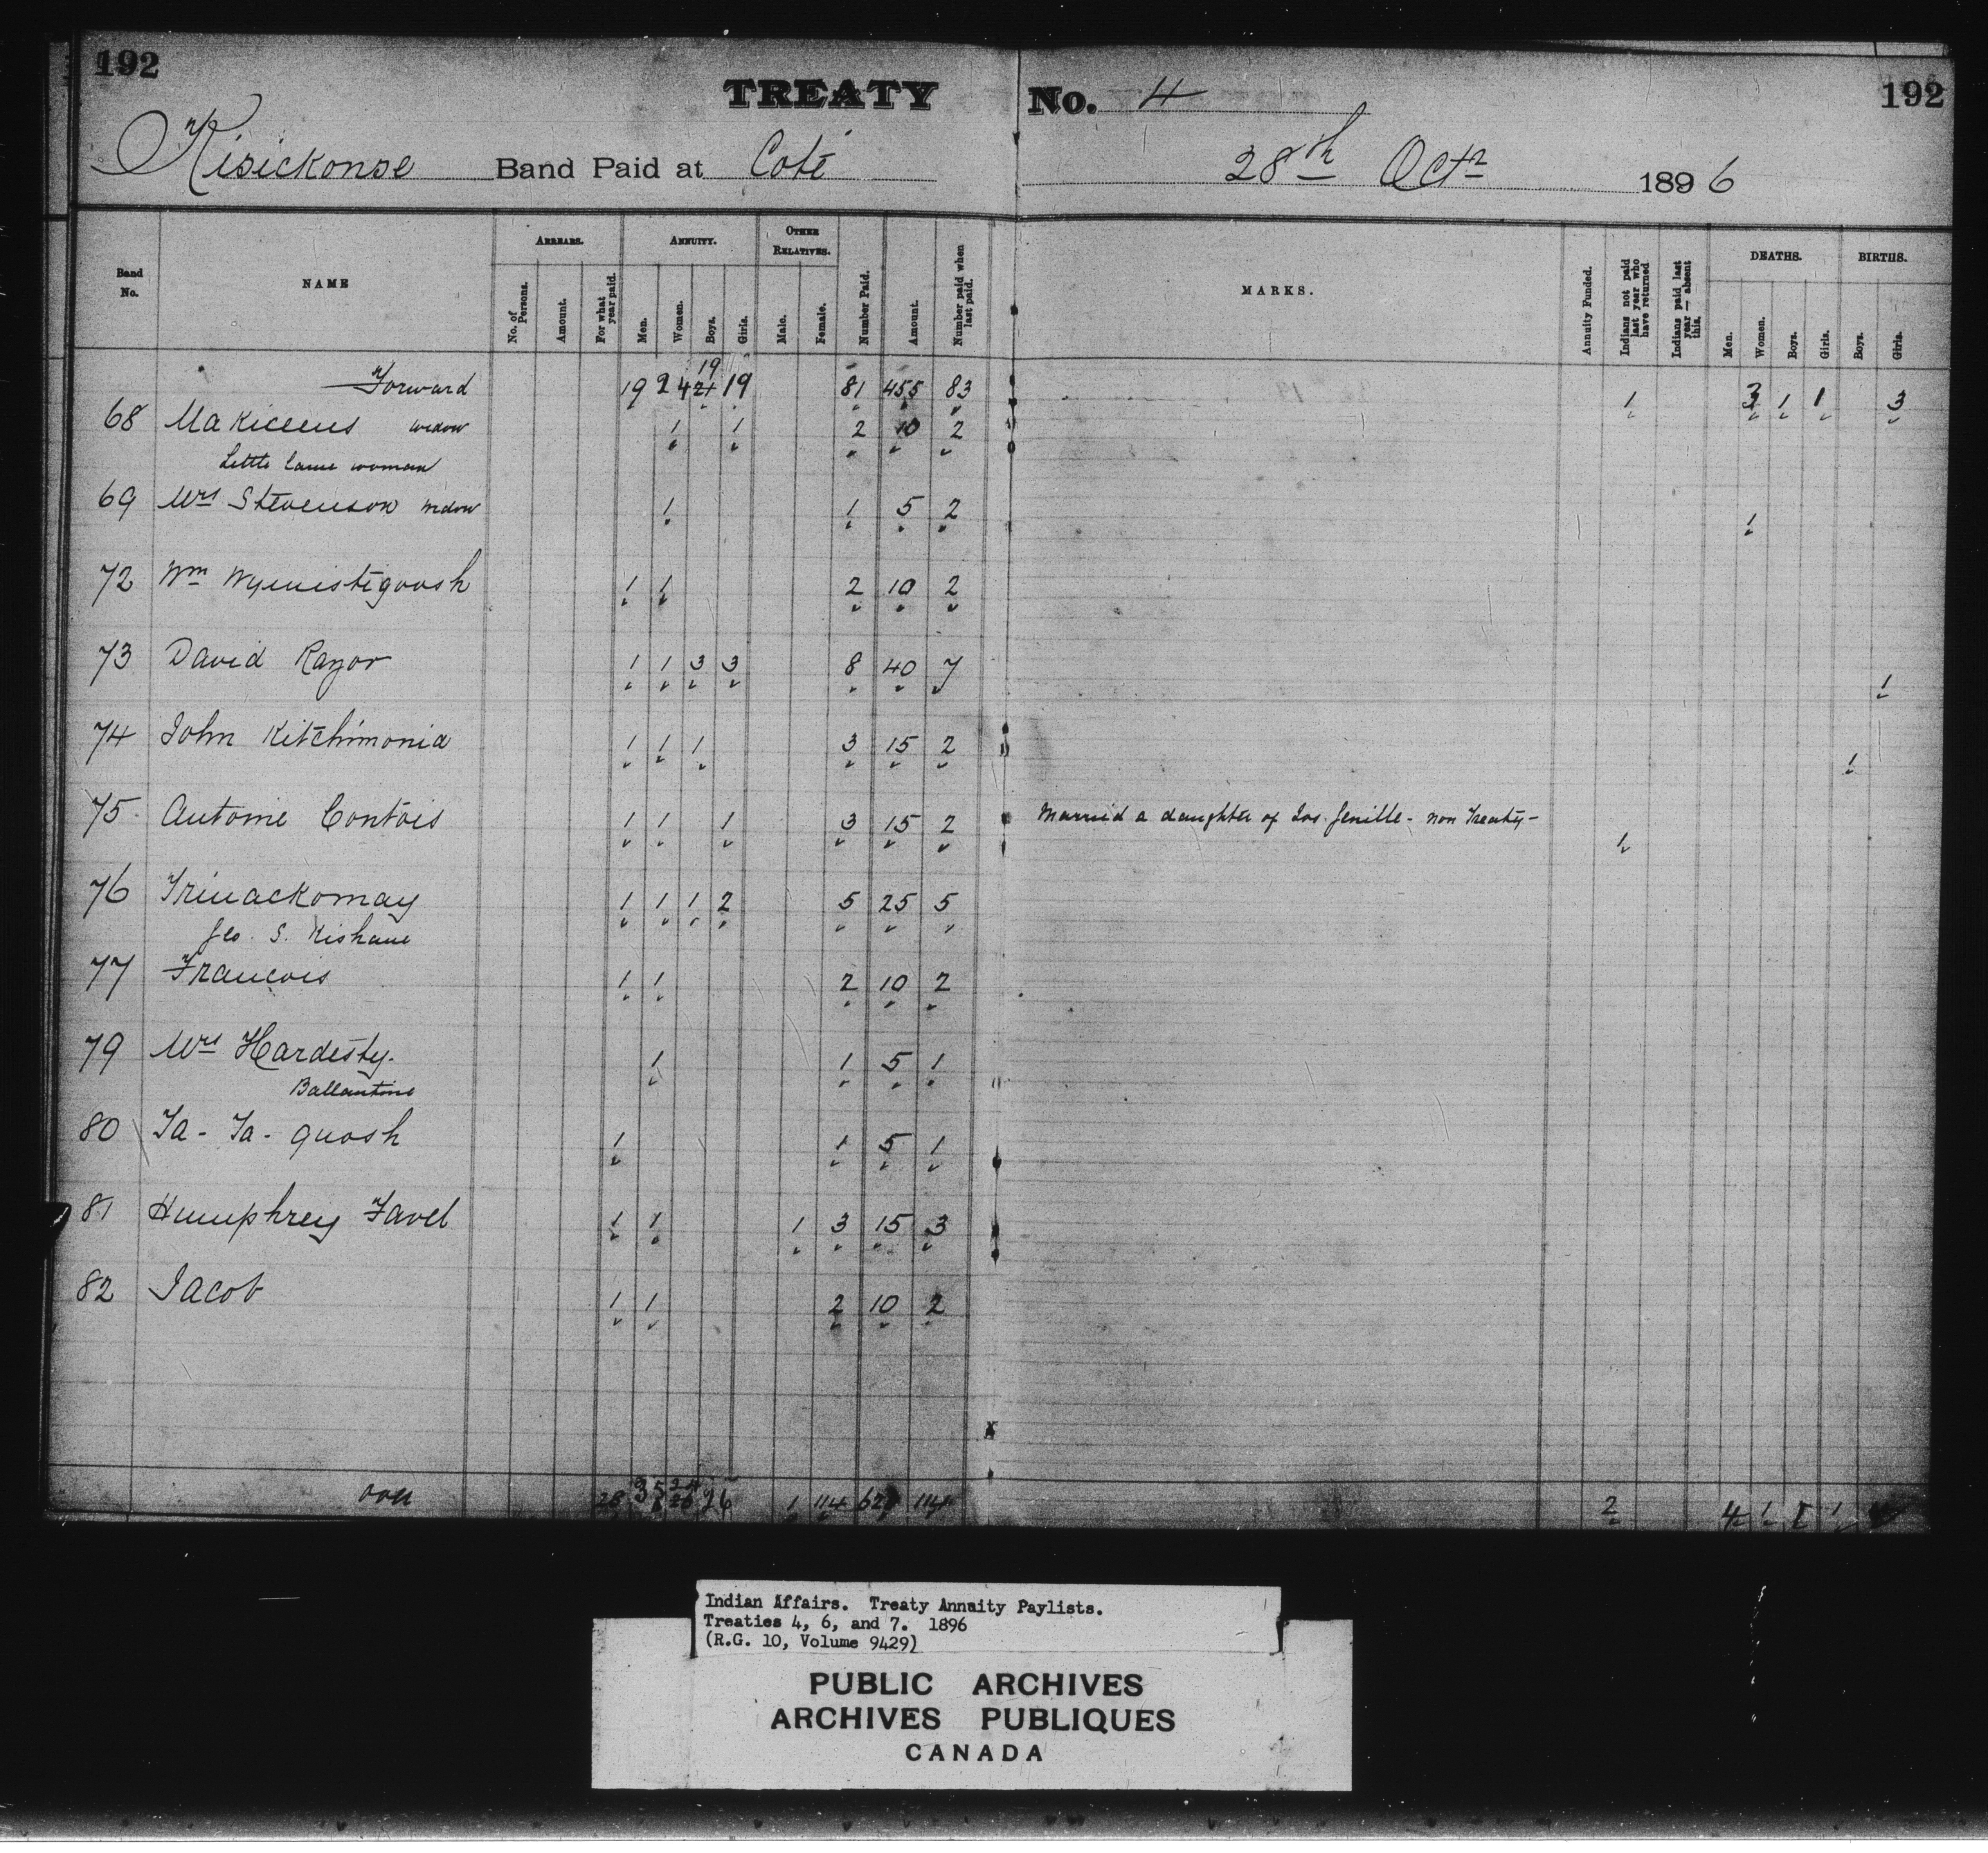 192 TREATY No. 4 192
Kisickonse Band Paid at Coté 28th Octr 1896
Band No. NAME ARREARS. No. of Persons. Amount. For what year paid. ANNUITY. Men. Women. Boys. Girls. OTHER RELATIVES. Male. Female. Number Paid. Amount. Number paid when last paid. MARKS. Annuity Funded. Indians not paid last year who have returned Indians paid last year — absent this. DEATHS. Men. Women. Boys. Girls. BIRTHS. Boys. Girls.
19
Forward 19 24 21 19 81 455 83 1 3 1 1 3
68 Makiceens widow 1 1 2 10 2
Little lame woman
69 Mrs Stevenson widow 1 1 5 2 1
72 Wm Wymistigoosh 1 1 2 10 2
73 David Razor 1 1 3 3 8 40 7 1
74 John Kitchimonia 1 1 1 3 15 2 1
75 Antoine Contois 1 1 1 3 15 2 Married a daughter of Jos. Genille - non Treaty - 1
76 Trinackomay 1 1 1 2 5 25 5
Geo. S. Kishane
77 Francois 1 1 2 10 2
79 Mrs Hardesty. 1 1 5 1
Ballantine
80 Ta - Ta - quosh 1 1 5 1
81 Humphrey Favel 1 1 1 3 15 3
82 Jacob 1 1 2 10 2
28 35 26 1 114 114 2 4 1 1 1
Indian Affairs. Treaty Annuity Paylists.
Treaties 4, 6, and 7. 1896
(R.G. 10, Volume 9429)
PUBLIC ARCHIVES
ARCHIVES PUBLIQUES
CANADA